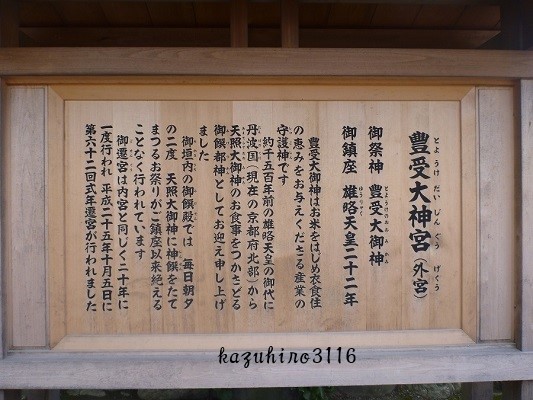 豊受大神宮（外宮）
御祭神　豊受大御神
御鎮座　雄略天皇二十二年
豊受大御神はお米をはじめ衣食住
の恵みをお与えくださる産業の
守護神です
約千五百年前の雄略天皇の御代に
丹波国（現在の京都府北部）から
天照大御神のお食事をつかさどる
御饌都神としてお迎え申し上げ
ました
御垣内の御饌殿では　毎日朝夕
の二度　天照大御神に神饌をたて
まつるお祭りがご鎮座以来絶える
ことなく行われています
御遷宮は内宮と同じく二十年に
一度行われ　平成二十五年十月五日に
第六十二回式年遷宮が行われました
kazuhiro3116